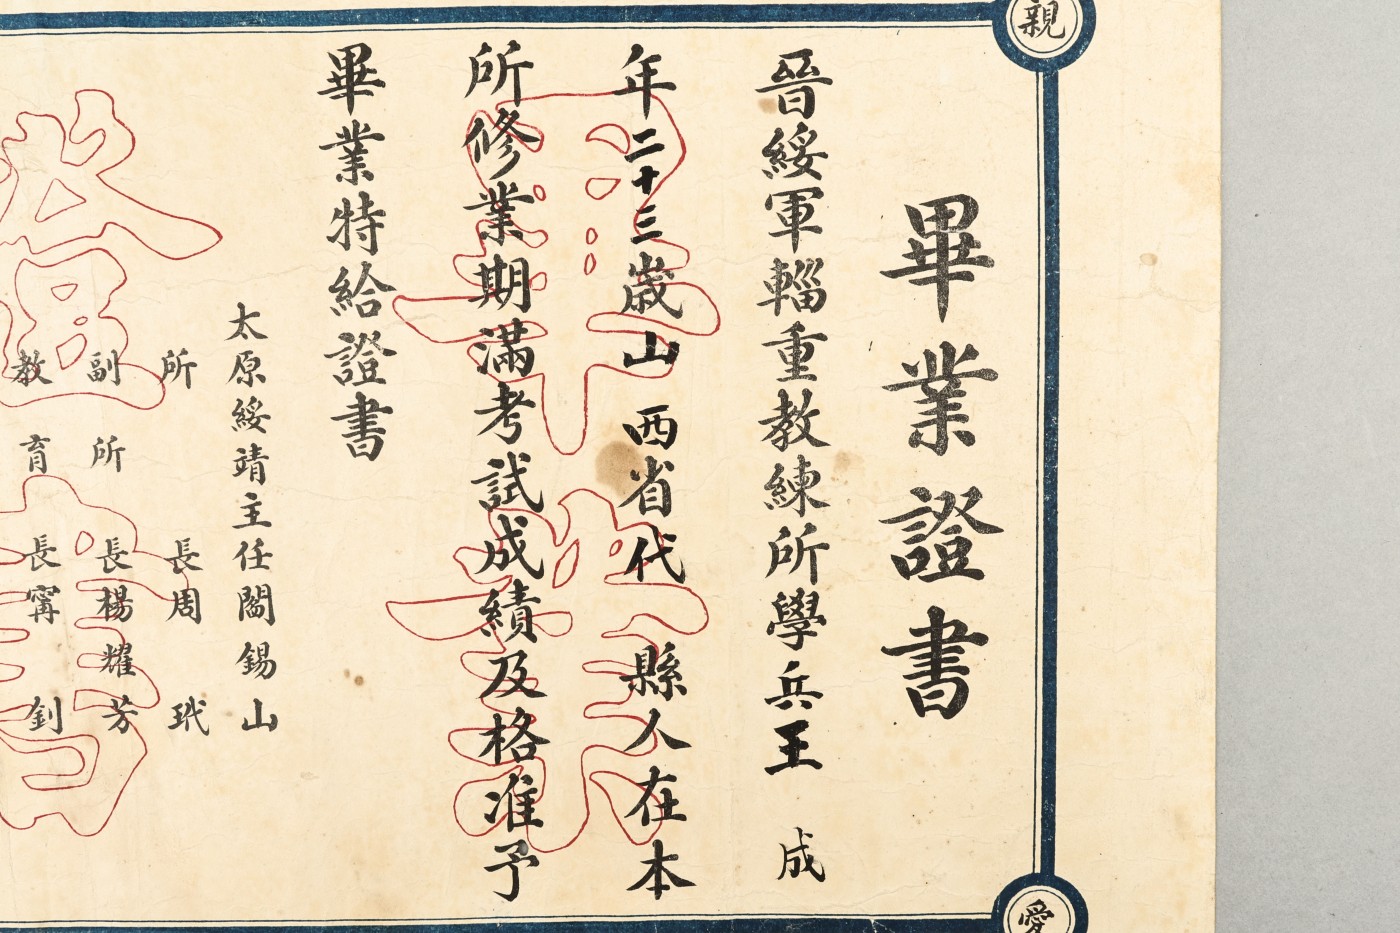 親
愛
畢業證書
晉綏軍輜重教練所學兵王 成
年二十三歲山 西省代 縣人在本
所修業期滿考試成績及格准予
畢業特給證書
太原綏靖主任閻錫山
所 長周 玳
副 所 長楊耀芳
教 育 長甯 釗